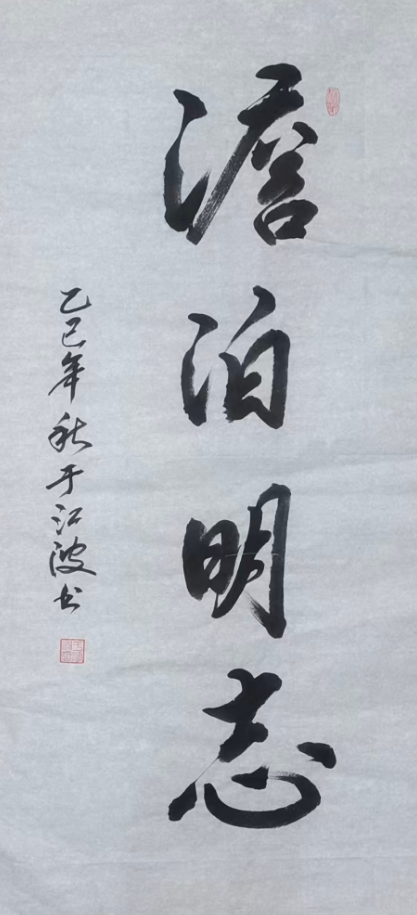 澹泊明志
乙巳年秋于江波书